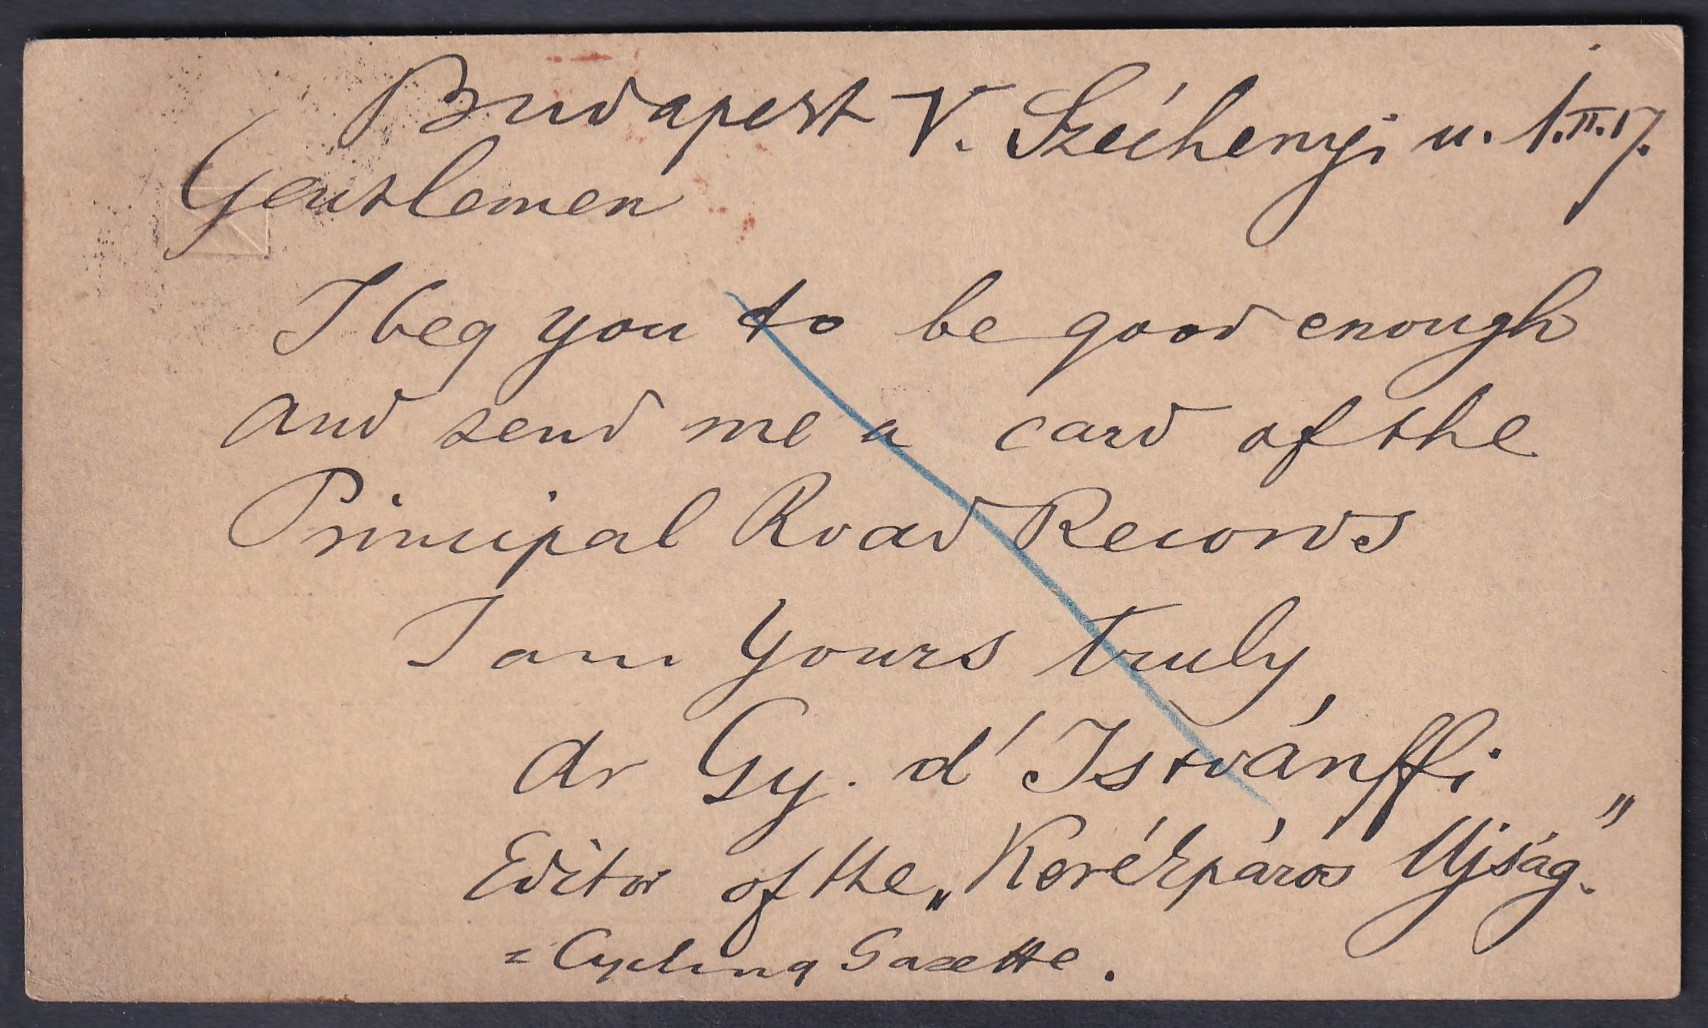 Budapest V. Széchenyi u. 1. II. 17.
Gentlemen
I beg you to be good enough
and send me a card of the
Principal Road Records
I am Yours truly
dr Gy. d'Istvánffi
Editor of the „Kerékpáros Ujság."
= Cycling Gazette.